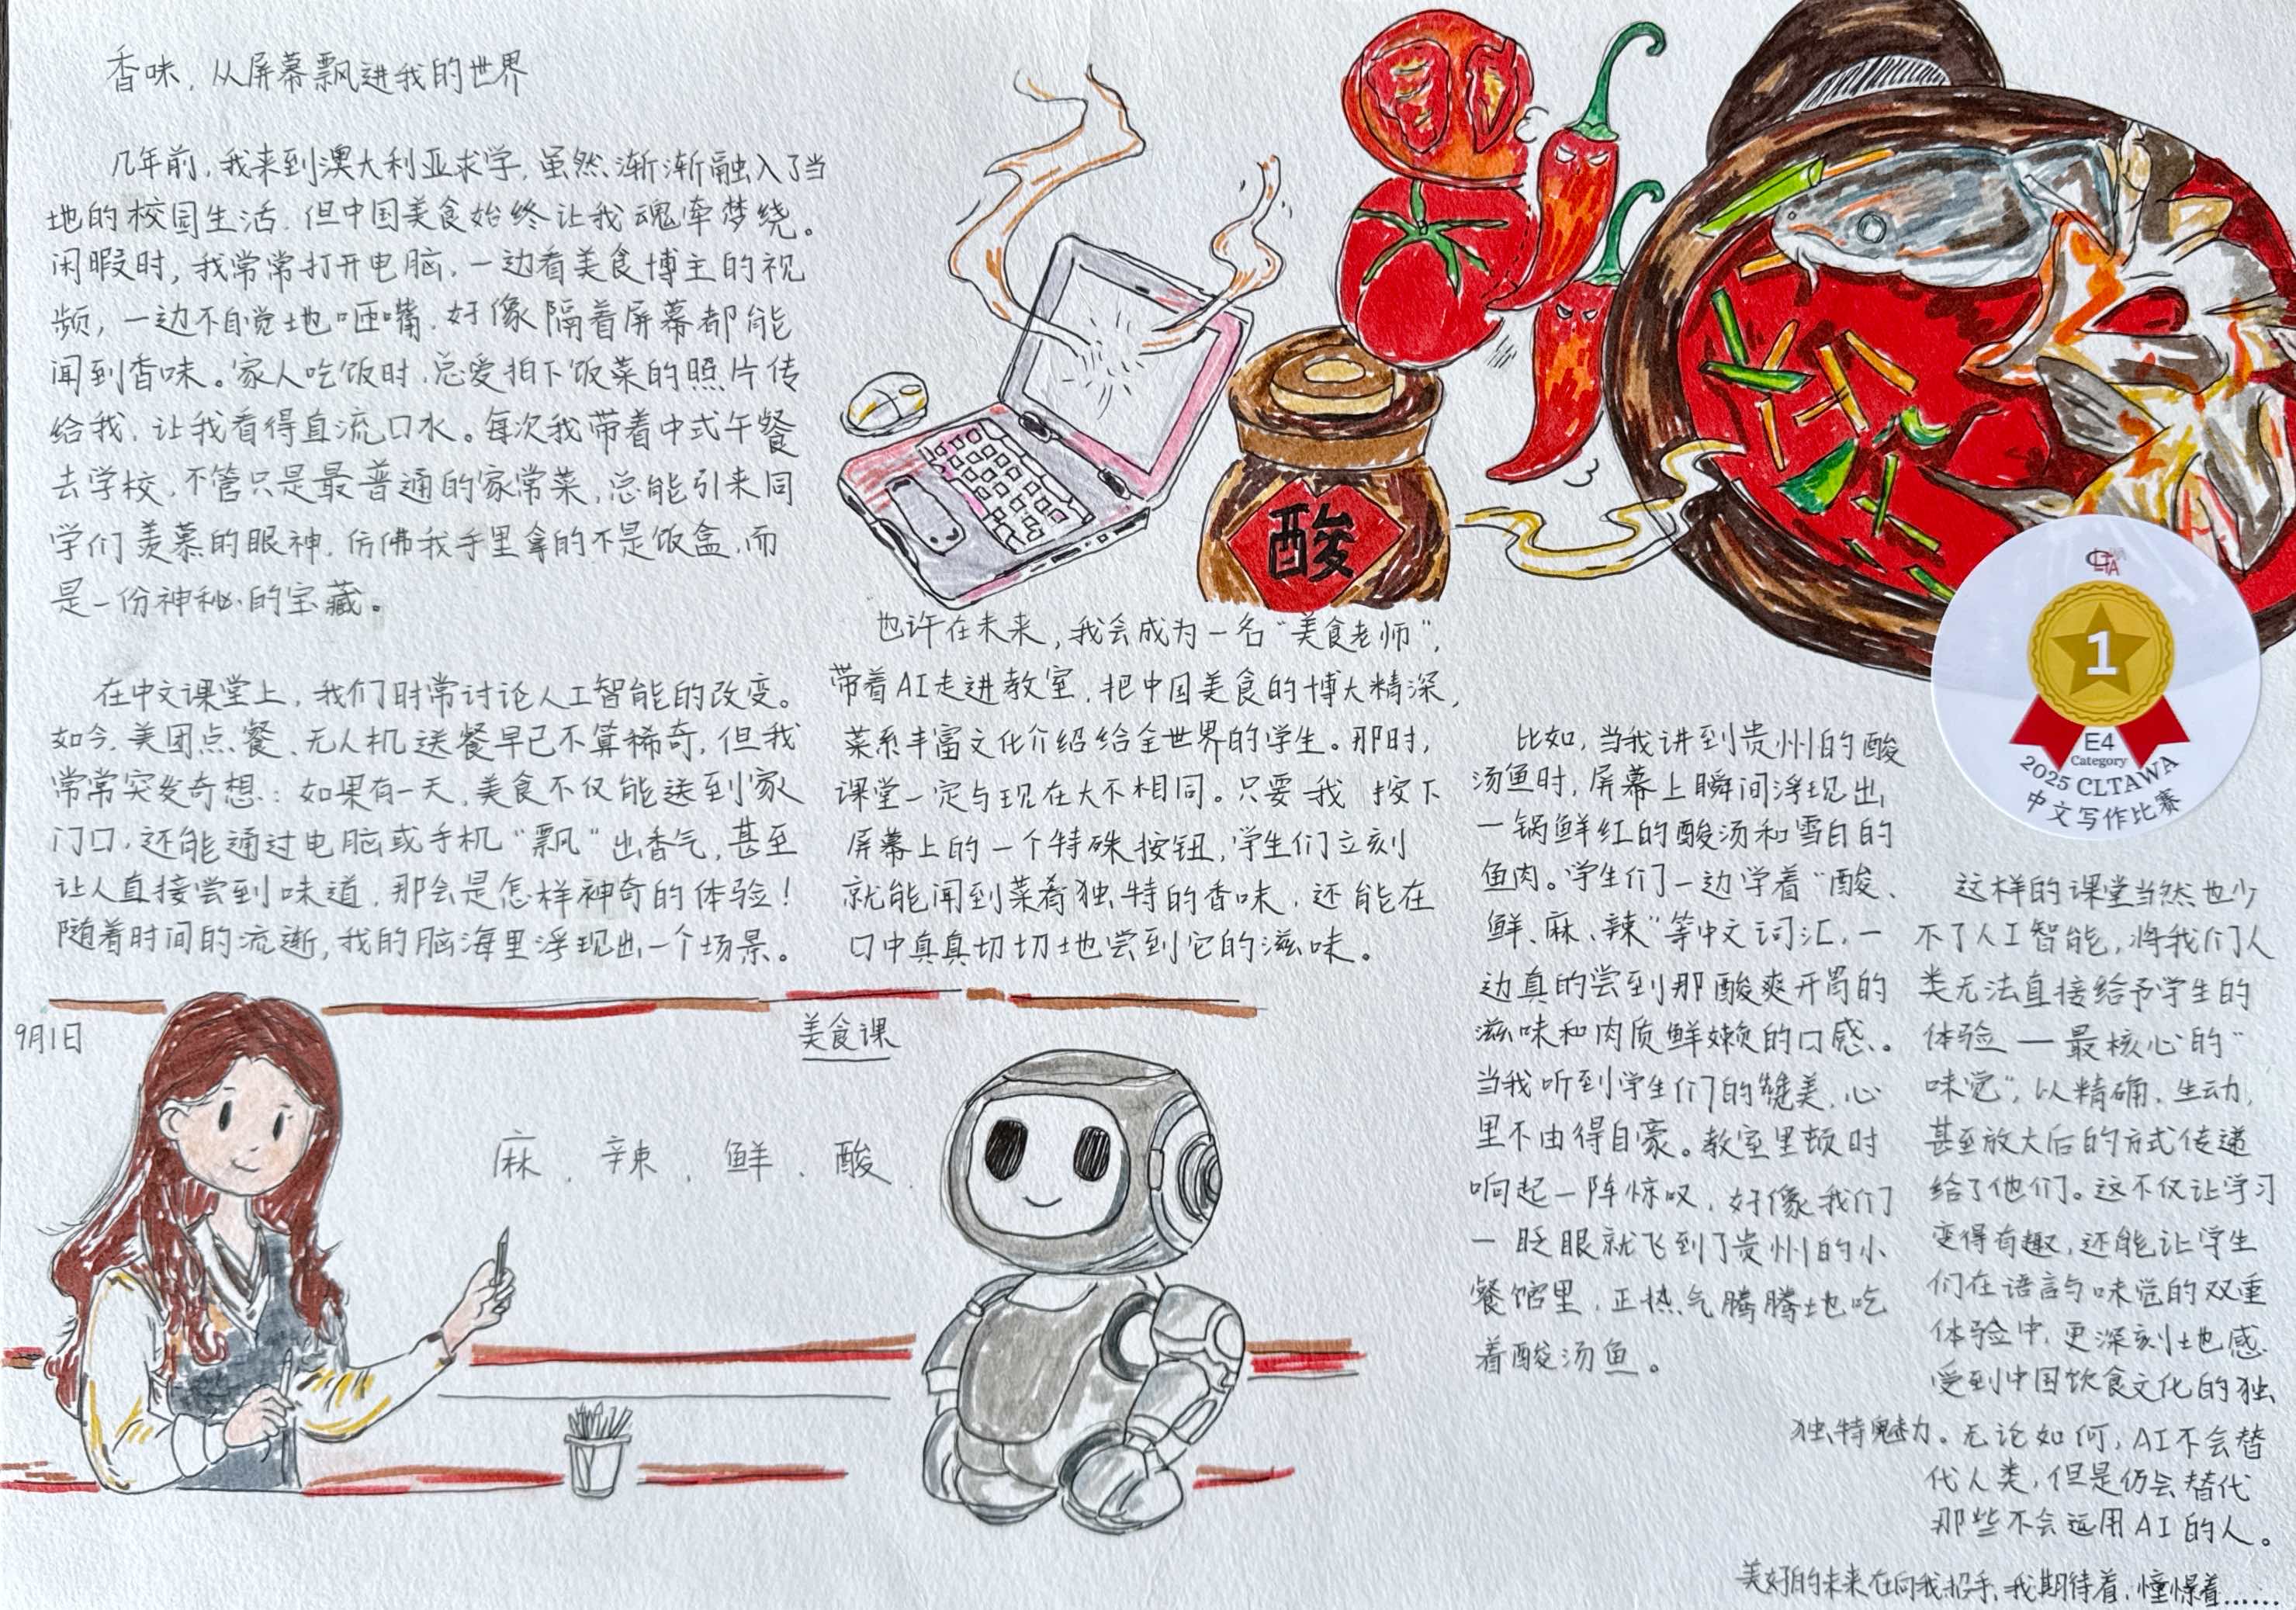 香味，从屏幕飘进我的世界
几年前，我来到澳大利亚求学，虽然渐渐融入了当
地的校园生活，但中国美食始终让我魂牵梦绕。
闲暇时，我常常打开电脑，一边看美食博主的视
频，一边不自觉地咂嘴，好像隔着屏幕都能
闻到香味。家人吃饭时，总爱拍下饭菜的照片传
给我，让我看得直流口水。每次我带着中式午餐
去学校，不管只是最普通的家常菜，总能引来同
学们羡慕的眼神，仿佛我手里拿的不是饭盒，而
是一份神秘的宝藏。
在中文课堂上，我们时常讨论人工智能的改变。
如今，美团点餐、无人机送餐早已不算稀奇，但我
常常突发奇想：如果有一天，美食不仅能送到家
门口，还能通过电脑或手机“飘”出香气，甚至
让人直接尝到味道，那会是怎样神奇的体验！
随着时间的流逝，我的脑海里浮现出一个场景。
酸
也许在未来，我会成为一名“美食老师”，
带着AI走进教室，把中国美食的博大精深，
菜系丰富文化介绍给全世界的学生。那时，
课堂一定与现在大不相同。只要我 按下
屏幕上的一个特殊按钮，学生们立刻
就能闻到菜肴独特的香味，还能在
口中真真切切地尝到它的滋味。
9月1日
美食课
麻、辣、鲜、酸、
比如，当我讲到贵州的酸
汤鱼时，屏幕上瞬间浮现出
一锅鲜红的酸汤和雪白的
鱼肉。学生们一边学着“酸、
鲜、麻、辣”等中文词汇，一
边真的尝到那酸爽开胃的
滋味和肉质鲜嫩的口感。
当我听到学生们的赞美，心
里不由得自豪。教室里顿时
响起一阵惊叹，好像我们
一眨眼就飞到了贵州的小
餐馆里，正热气腾腾地吃
着酸汤鱼。
CLTA
1
E4
Category
2025 CLTAWA
中文写作比赛
这样的课堂当然也少
不了人工智能，将我们人
类无法直接给予学生的
体验—最核心的“
味觉”，以精确、生动，
甚至放大后的方式传递
给了他们。这不仅让学习
变得有趣，还能让学生
们在语言与味觉的双重
体验中，更深刻地感
受到中国饮食文化的独
独特魅力。无论如何，AI不会替
代人类，但是仍会替代
那些不会运用AI的人。
美好的未来在向我招手，我期待着，憧憬着……